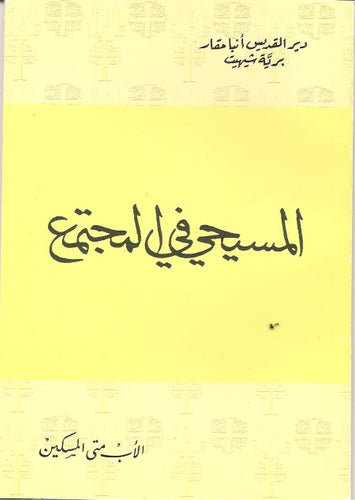 دير القديس أنبا مقار
بريَّة شيهيت
المسيحي في المجتمع
الأب متى المسكين